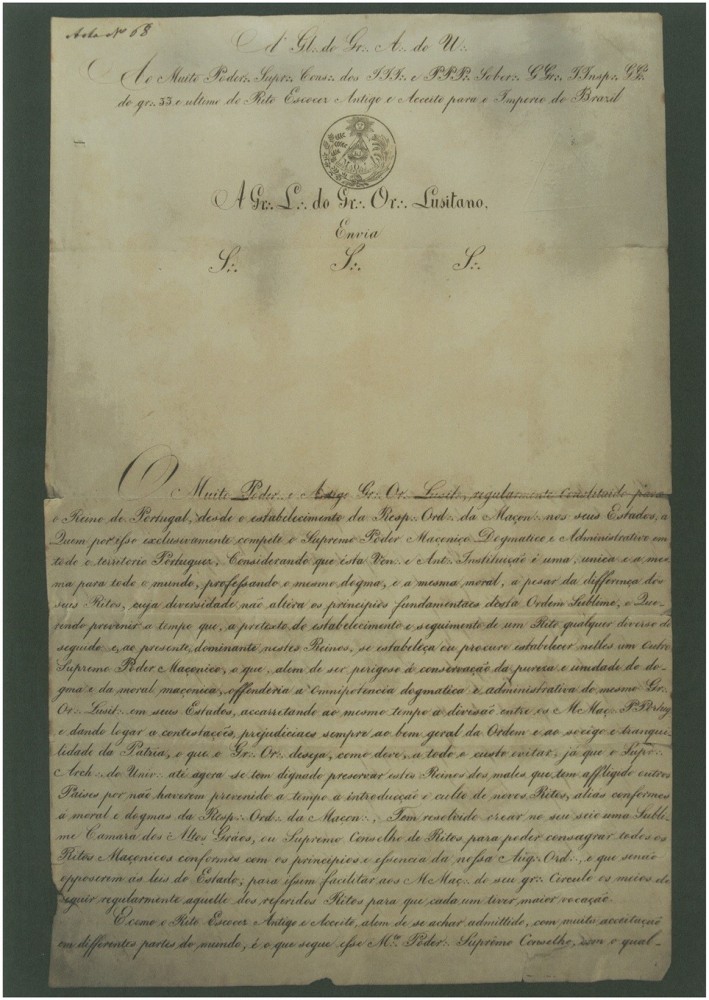 Acta Nº 68
A' Gl∴ do Gr∴ A∴ do U∴
Ao Muito Poder∴ Supr∴ Cons∴ dos III∴ e PPP∴ Sober∴ GGr∴ IInsp∴ GG∴
do gr∴ 33 e ultimo do Rito Escocez Antigo e Acceito para o Imperio do Brazil
A Gr∴ L∴ do Gr∴ Or∴ Lusitano.
Envia
S∴ S∴ S∴
O Muito Poder∴ e Antigo Gr∴ Or∴ Lusit∴, regularmente constituido para
o Reino de Portugal, desde o estabelecimento da Resp∴ Ord∴ da Maçon∴ nos seus Estados, a
Quem por isso exclusivamente compete o Supremo Poder Maçonico Dogmatico e Administrativo em
todo o territorio Portuguez, Considerando que esta Ven∴ e Ant∴ Instituição é uma, unica e a mes-
ma para todo o mundo, professando o mesmo dogma, e a mesma moral, a pesar da differença dos
seus Ritos, cuja diversidade não altera os principios fundamentaes desta Ordem Sublime, e Que-
rendo prevenir a tempo que, a pretexto do estabelecimento e seguimento de um Rito qualquer diverso do
seguido e, ao presente, dominante nestes Reinos, se estabeleça ou procure estabelecer nelles um outro
Supremo Poder Maçonico, o que, alem de ser perigoso á conservação da pureza e unidade do do-
gma e da moral maçonica, offenderia a Omnipotencia dogmatica e administrativa do mesmo Gr∴
Or∴ Lusit∴ em seus Estados, accarretando ao mesmo tempo a divisão entre os MMaç∴ PPortug
e dando logar a contestações, prejudiciaes sempre ao bem geral da Ordem e ao socego e tranqui-
lidade da Patria, o que o Gr∴ Or∴ deseja, como deve, a todo o custo evitar, já que o Sup∴
Arch∴ do Univ∴ até agora se tem dignado preservar estes Reinos dos males que tem affligido outros
Paises por não haverem prevenido a tempo a introducção e culto de novos Ritos, alias conformes
á moral e dogmas da Resp∴ Ord∴ da Maçon∴, Tem resolvido crear no seu seio uma Subli-
me Camara dos Altos Gráos, ou Supremo Conselho de Ritos, para poder consagrar todos os
Ritos Maçonicos conformes com os principios e essencia da nossa Aug∴ Ord∴, e que senão
opposerem ás leis do Estado; para assim facilitar aos MMaç∴ do seu gr∴ Circulo os meios de
seguir regularmente aquelle dos referidos Ritos para que cada um tiver maior vocação.
E como o Rito Escocez Antigo e Acceito, além de se achar admittido, com muita acceitação
em differentes partes do mundo, é o que segue esse Mto Poder∴ Supremo Conselho, com o qual-